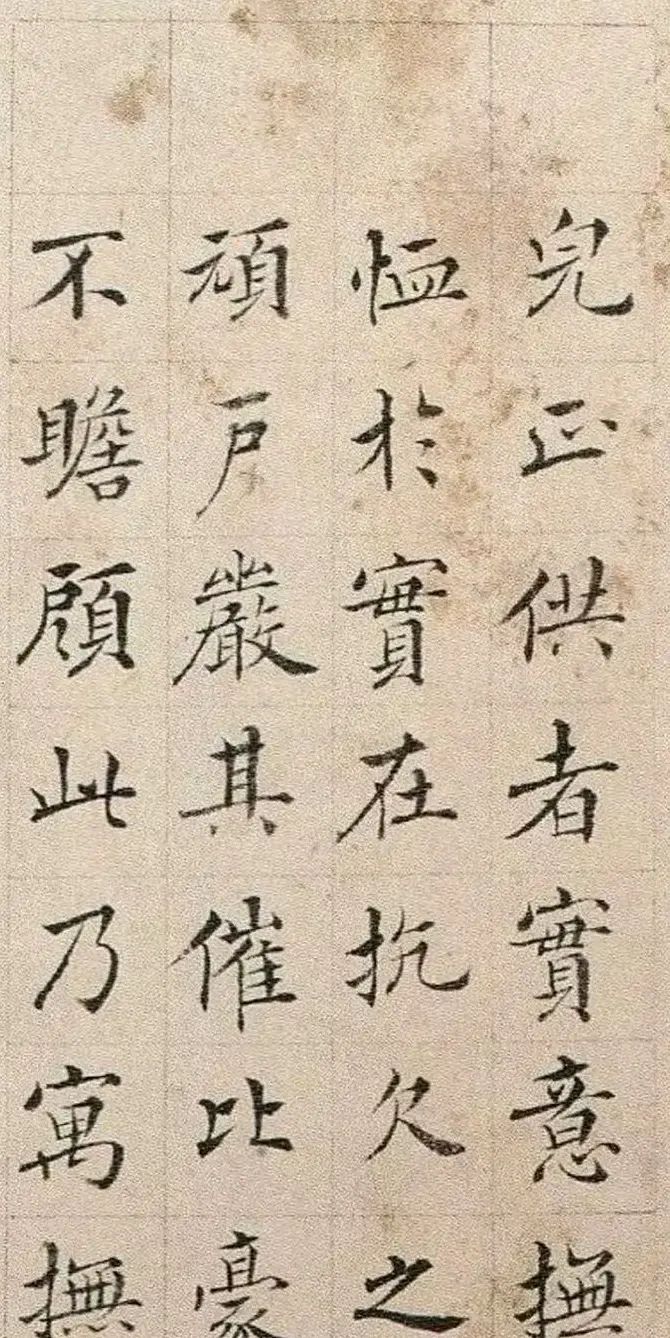 皃正供者實意撫
恤於實在抗欠之
頑戶嚴其催比豪
不瞻顧此乃寓撫